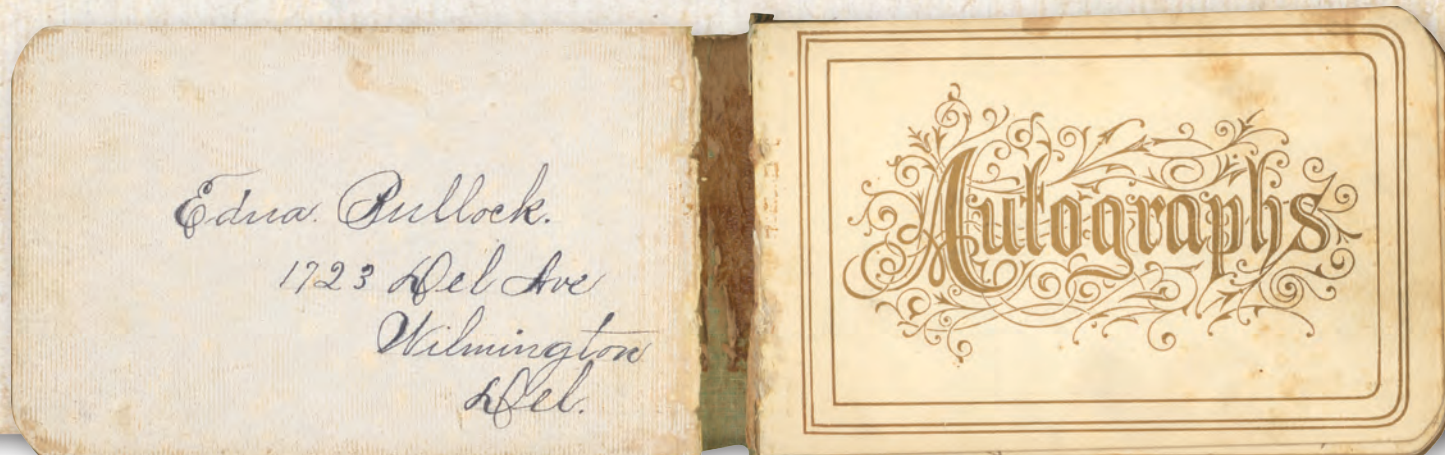 Edna. Bullock.
1723 Del Ave
Wilmington
Del.
Autographs